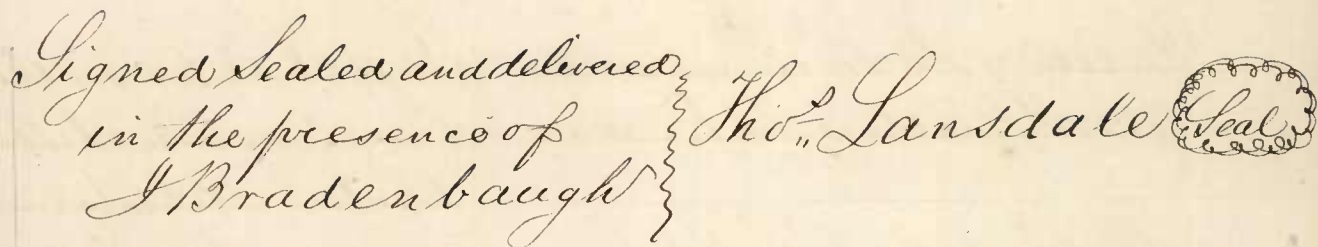 Signed Sealed and delivered
in the presence of
J Bradenbaugh
Thos. Lansdale Seal